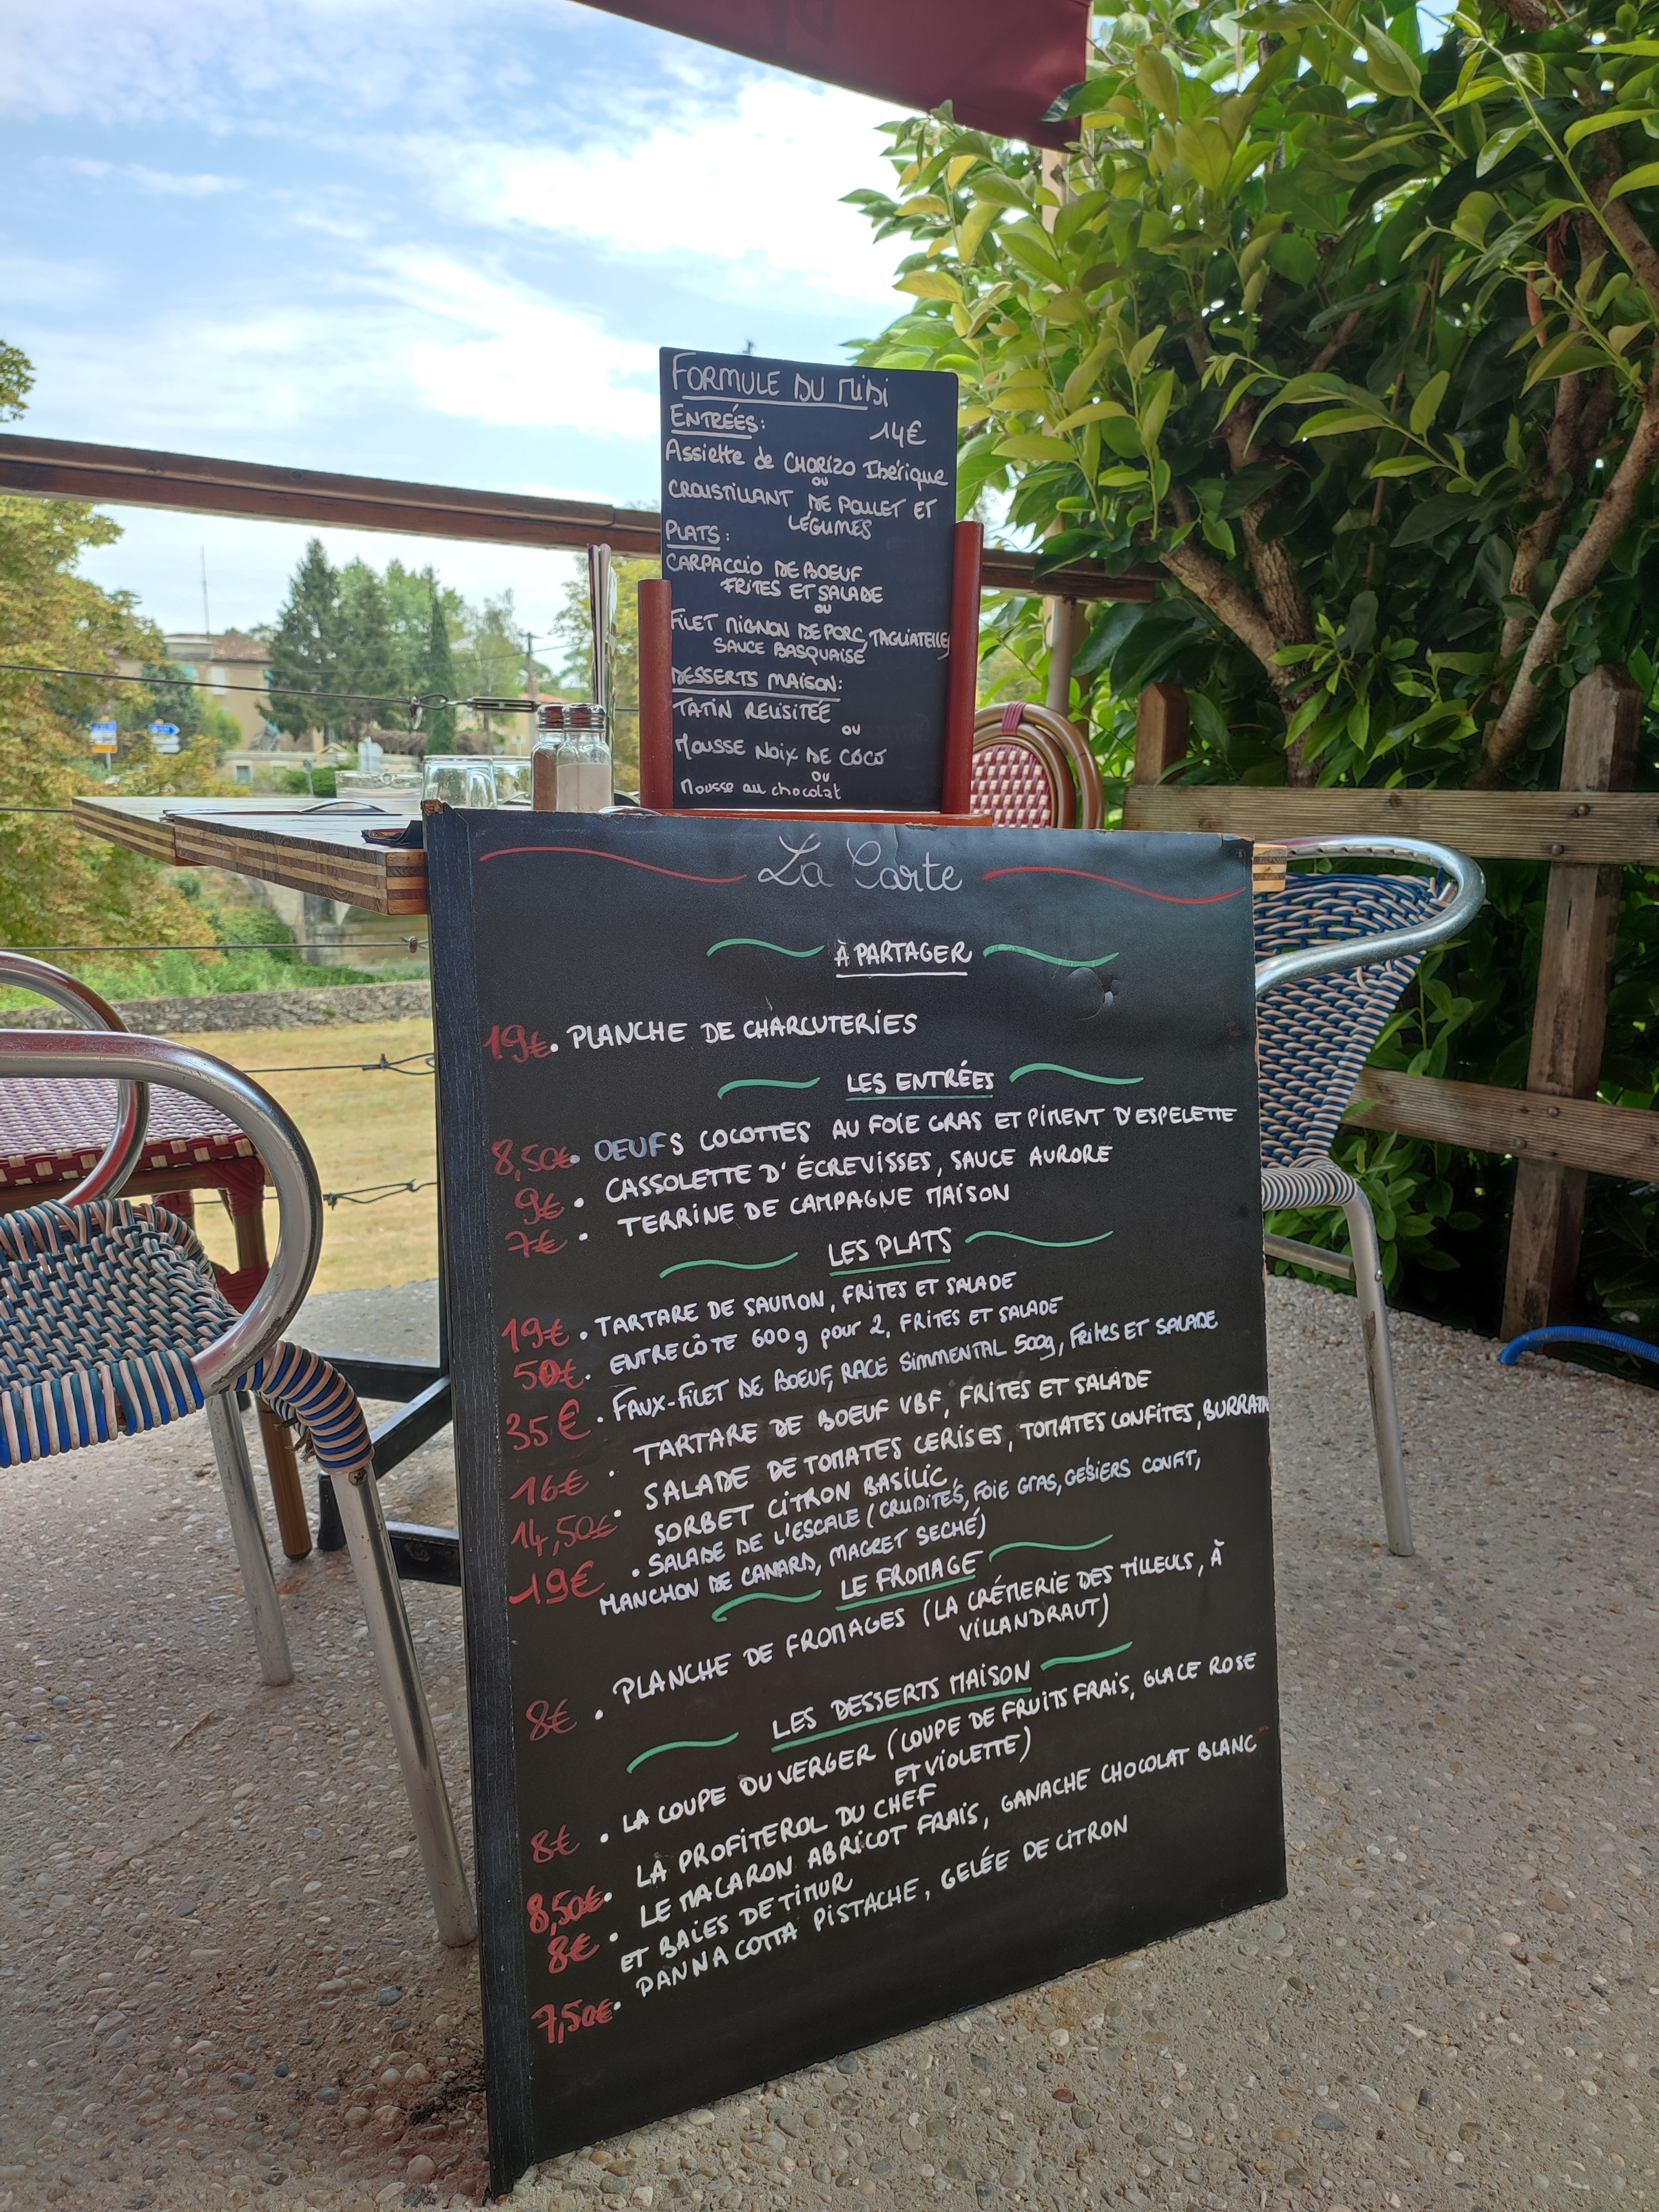 FORMULE DU MIDI
ENTRÉES: 14€
Assiette de CHORIZO Ibérique
ou
CROUSTILLANT DE POULET ET
LÉGUMES
PLATS:
CARPACCIO DE BOEUF
FRITES ET SALADE
OU
FILET MIGNON DE PORC, TAGLIATELLES
SAUCE BASQUAISE
DESSERTS MAISON:
TATIN REVISITÉE
OU
MOUSSE NOIX DE COCO
OU
Mousse au chocolat
La Carte
À PARTAGER
19€. PLANCHE DE CHARCUTERIES
LES ENTRÉES
8,50€. OEUFS COCOTTES AU FOIE GRAS ET PIMENT D'ESPELETTE
9€ • CASSOLETTE D'ÉCREVISSES, SAUCE AURORE
7€ • TERRINE DE CAMPAGNE MAISON
LES PLATS
19€ • TARTARE DE SAUMON, FRITES ET SALADE
50€. ENTRECÔTE 600g pour 2, FRITES ET SALADE
35€ • FAUX-FILET DE BOEUF, RACE SIMMENTAL 500g, FRITES ET SALADE
16€ • TARTARE DE BOEUF VBF, FRITES ET SALADE
14,50€ • SALADE DE TOMATES CERISES, TOMATES CONFITES, BURRATA
SORBET CITRON BASILIC
19€ • SALADE DE L'ESCALE (CRUDITÉS, FOIE GRAS, GÉSIERS CONFIT,
MANCHON DE CANARD, MAGRET SECHÉ)
LE FROMAGE
8€ • PLANCHE DE FROMAGES (LA CRÉMERIE DES TILLEULS, À
VILLANDRAUT)
LES DESSERTS MAISON
8€ • LA COUPE DU VERGER (COUPE DE FRUITS FRAIS, GLACE ROSE
ET VIOLETTE)
8,50€• LA PROFITEROL DU CHEF
8€ • LE MACARON ABRICOT FRAIS, GANACHE CHOCOLAT BLANC
ET BAIES DE TIMUR
7,50€• PANNA COTTA PISTACHE, GELÉE DE CITRON